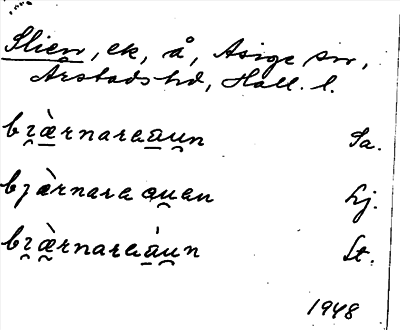 Slien, ek, å, Asige sn,
Årstads hd, Hall. l.
bɿæ̀rnareaun Sa.
bjàrnara auen Lj.
bɿæ̀rnareáun St.
1948